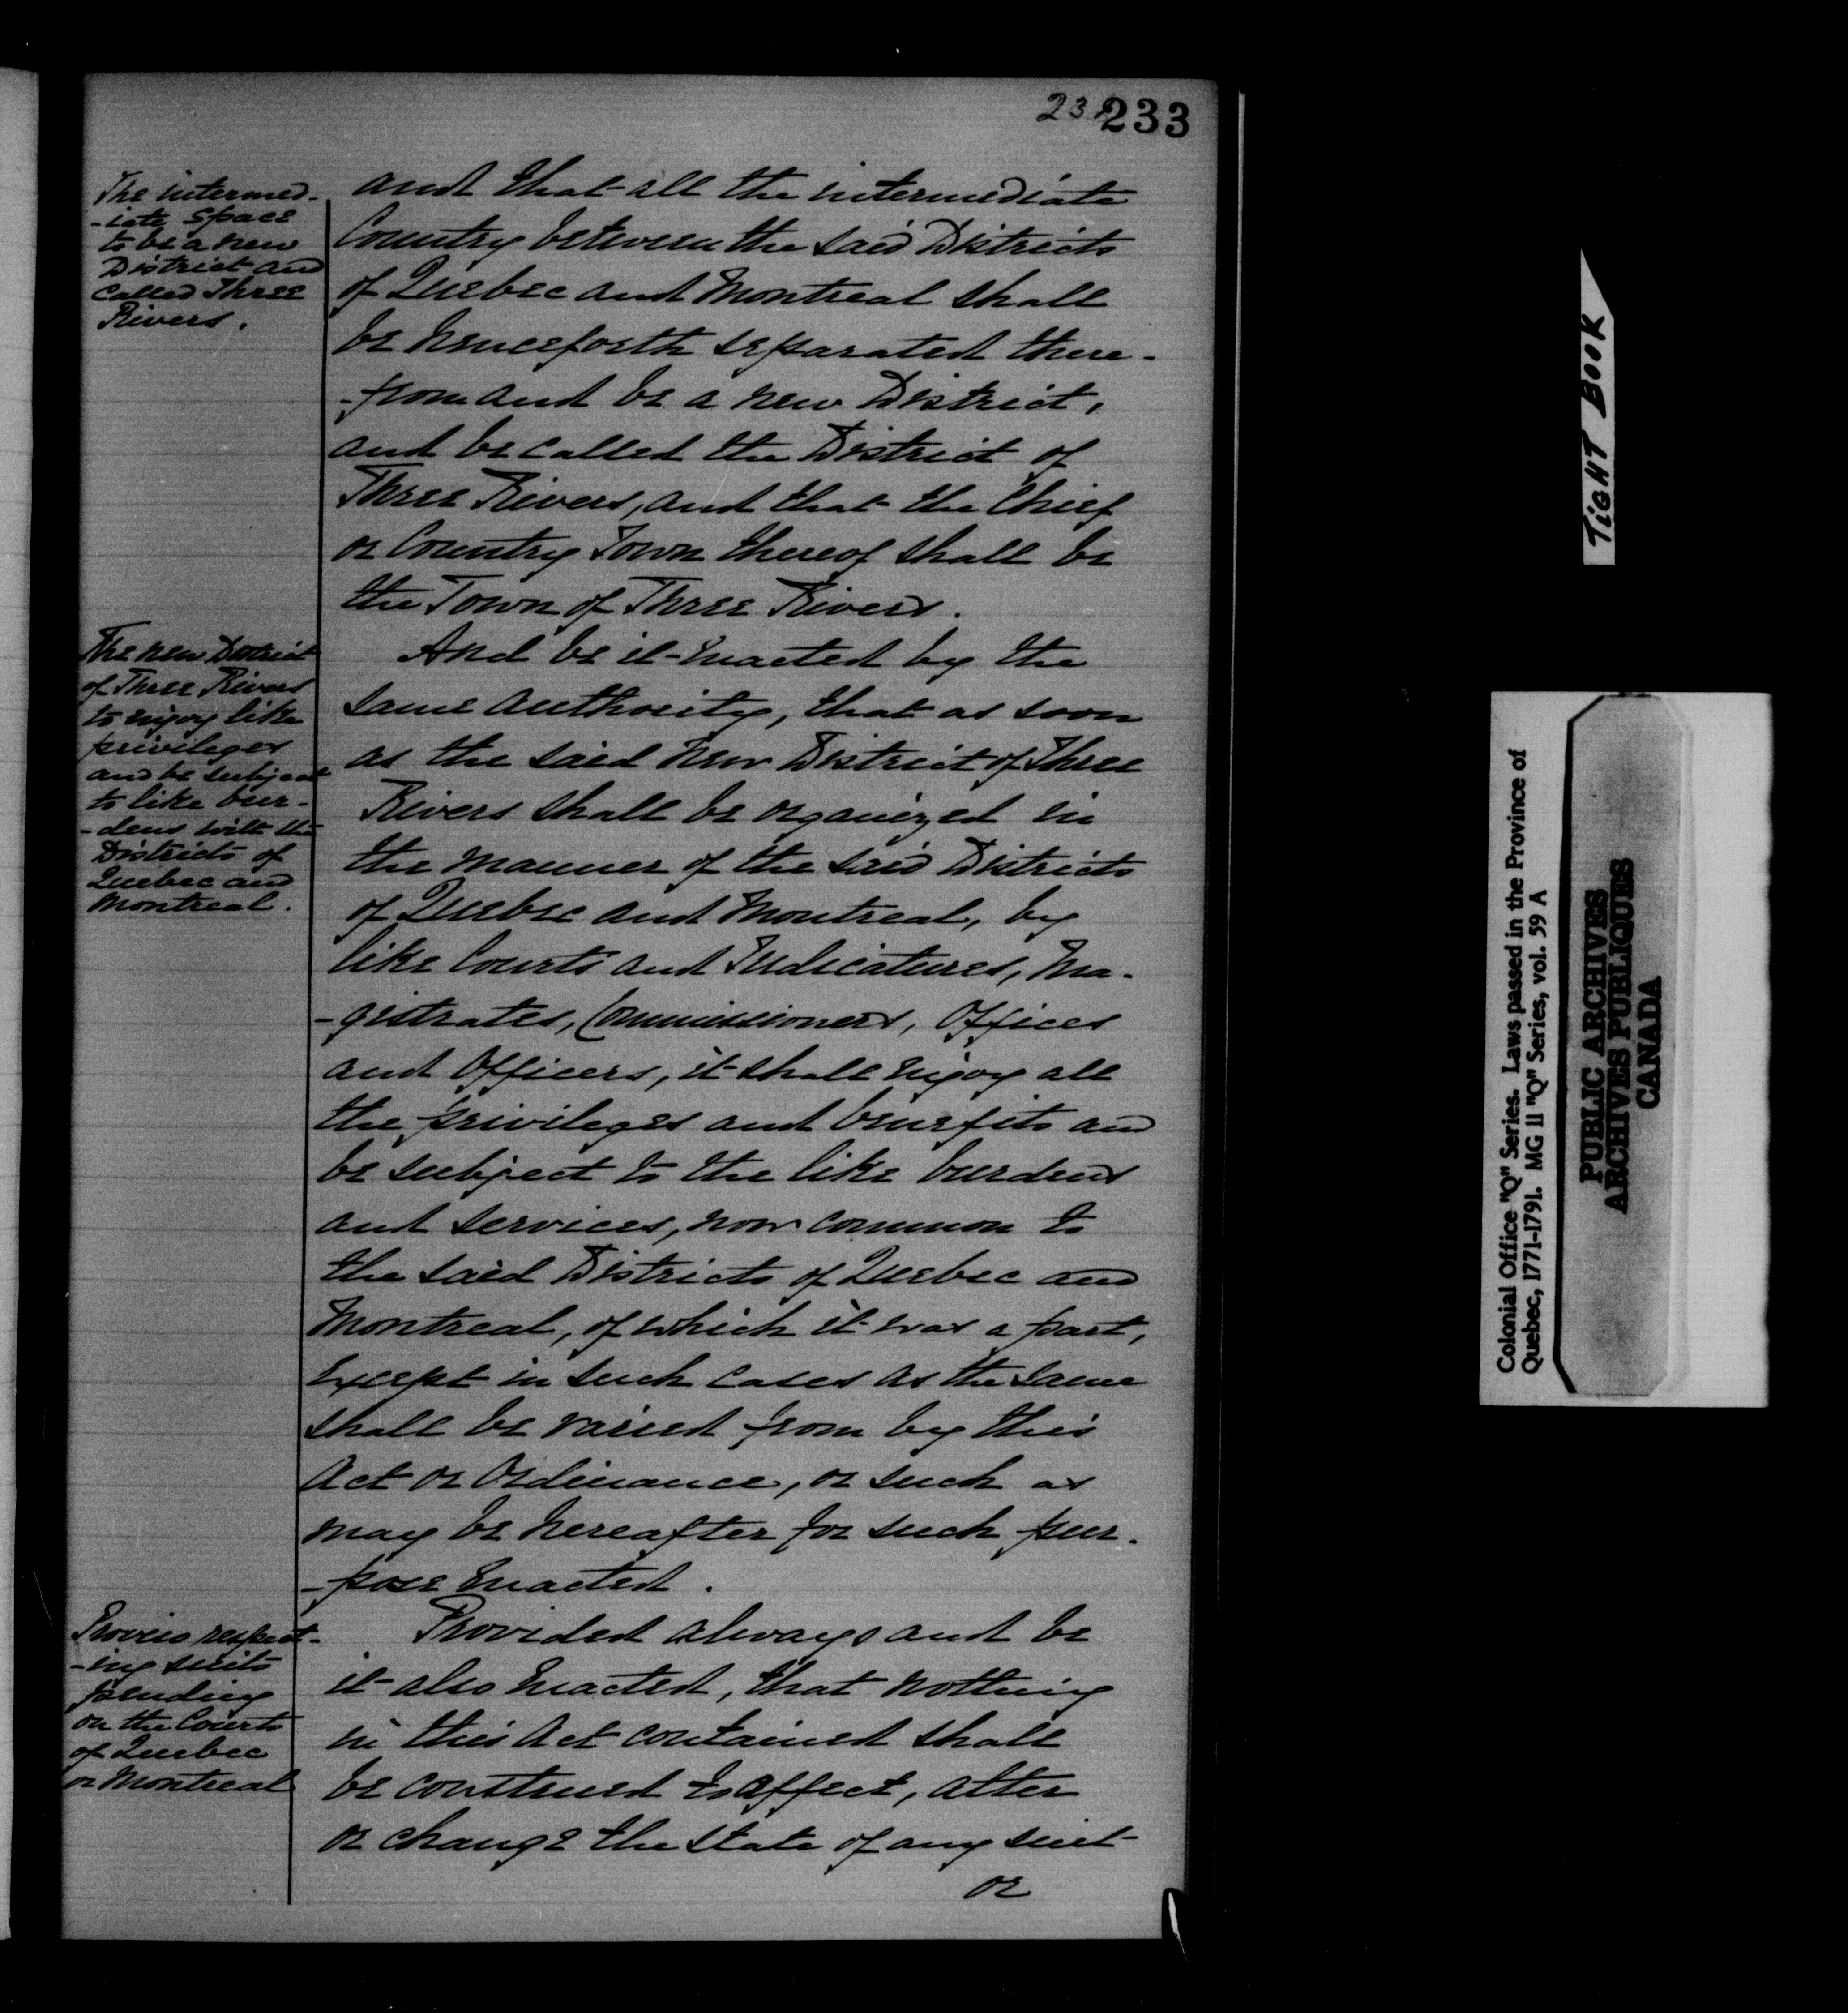 233
The intermed-
-iate space
to be a new
District and
called Three
Rivers.
and that all the intermediate
Country between the said Districts
of Quebec and Montreal shall
be henceforth separated there-
-from and be a new District,
and be called the District of
Three Rivers, and that the Chief
or Country Town thereof shall be
the Town of Three Rivers.
The new District
of Three Rivers
to enjoy like
privileges
and be subject
to like bur-
-dens with the
Districts of
Quebec and
Montreal.
And be it enacted by the
same authority, that as soon
as the said new District of Three
Rivers shall be organized in
the manner of the said Districts
of Quebec and Montreal, by
like Courts and Judicatures, Ma-
-gistrates, Commissioners, Offices
and Officers, it shall enjoy all
the privileges and benefits and
be subject to the like burdens
and services, now common to
the said Districts of Quebec and
Montreal, of which it was a part,
Except in such cases as the same
shall be varied from by this
Act or Ordinance, or such as
may be hereafter for such pur-
-pose Enacted.
Proviso respect-
-ing suits
pending
on the Courts
of Quebec
or Montreal
Provided always and be
it also Enacted, that nothing
in this Act contained shall
be construed to affect, alter
or change the state of any suit
or
TIGHT BOOK
Colonial Office "Q" Series. Laws passed in the Province of
Quebec, 1771-1791. MG 11 "Q" Series, vol. 59 A
PUBLIC ARCHIVES
ARCHIVES PUBLIQUES
CANADA